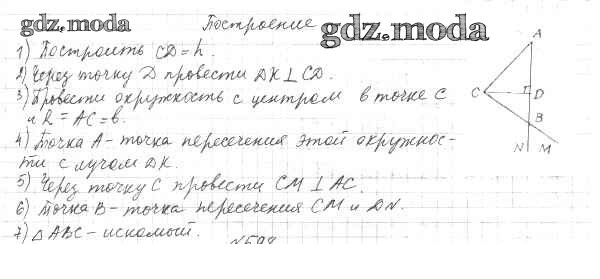 gdz.moda Построение gdz.moda
1) Построить CD = h.
2) Через точку D провести DK ⊥ CD.
3) Провести окружность с центром в точке C
и R = AC = b.
4) Точка A – точка пересечения этой окружнос-
ти с лучом DK.
5) Через точку C провести CM ⊥ AC.
6) Точка B – точка пересечения CM и DN.
7) △ABC – искомый.
A
C
D
B
N M